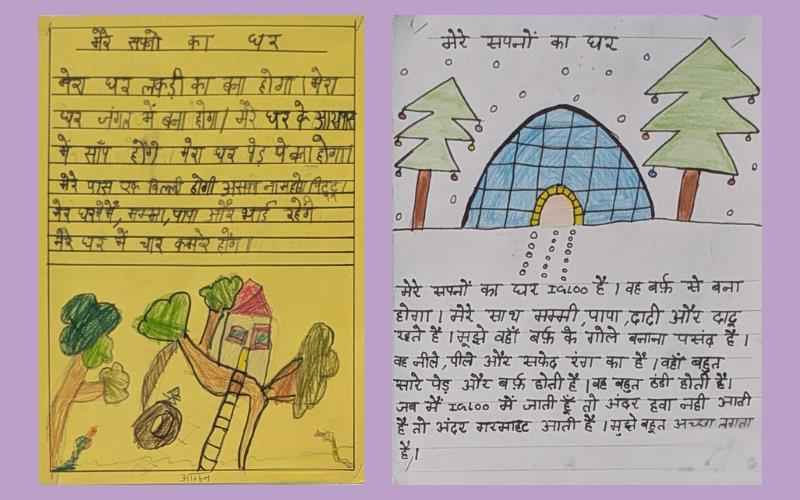 मेरे सपनो का घर
मेरा घर लकड़ी का बना होगा। मेरा
घर जंगल में बना होगा। मेरे घर के आसपास
में साँप होंगे मेरा घर पेड़ पे बना होगा।
मेरे पास एक बिल्ली होगी उसका नाम होगा पिट्टू।
मेरे घर में मैं, मम्मा, पापा और भाई रहेंगे
मेरे घर में चार कमरे होंगे।
मेरे सपनों का घर
मेरे सपनों का घर IGLOO है। वह बर्फ़ से बना
होगा। मेरे साथ मम्मी, पापा, दादी और दादू
रहते है। मुझे वहाँ बर्फ़ के गोले बनाना पसंद है।
वह नीले, पीले और सफेद रंग का है। वहाँ बहुत
सारे पेड़ और बर्फ़ होती है। वह बहुत ठंडी होती है।
जब मैं IGLOO में जाती हूँ तो अंदर हवा नही आती
है तो अंदर गरमाहट आती है। मुझे बहुत अच्छा लगता
है।